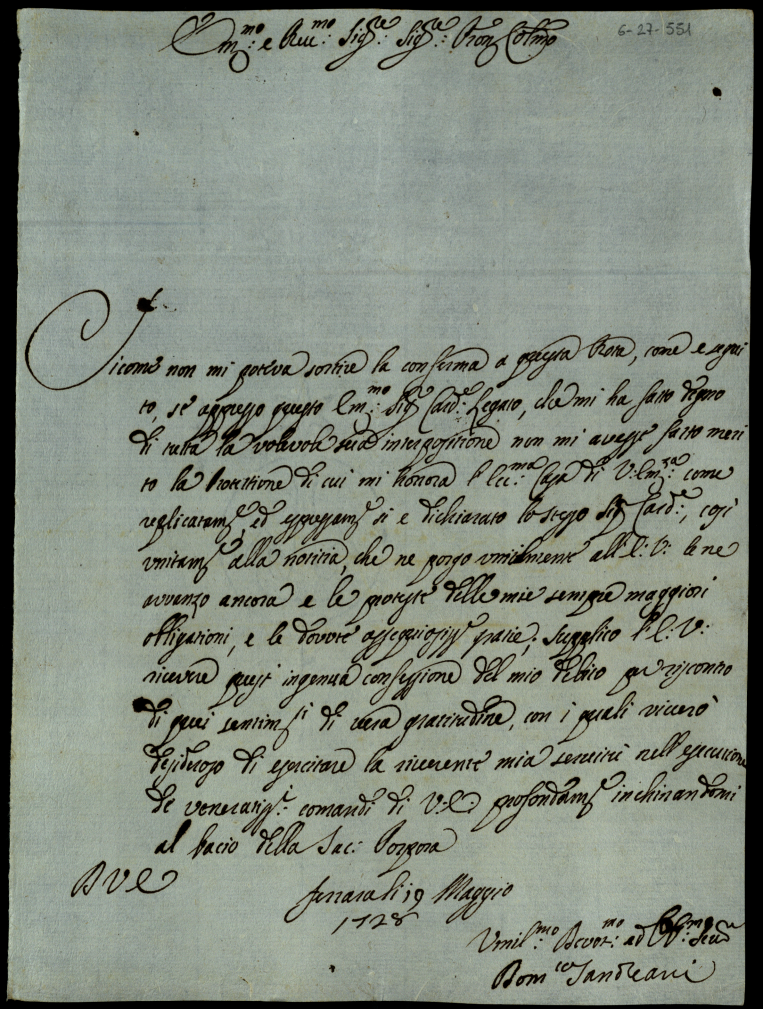 Em:mo e Rev:mo Sig:re Sig:re Pron Colmo
6-27-551
Sicome non mi poteva sortire la conferma a questa Rota, come e segui
to, se appresso questo Em:mo Sig:re Card: Legato, che mi ha fatto degno
di tutta la valevole sua interpositione non mi avesse fatto meri
to la Protettione di cui mi honora l'Ecc:ma Casa di V: Em:za come
replicatam:te ed espressam:te si e dichiarato lo stesso Sig:re Card:le, cosi
unitam:te alla notitia, che ne porgo umilmente all'E: V: le ne
avvanzo ancora e le proteste delle mie sempre maggiori
obligationi, e le dovute ossequiosiss:e gratie; Supplico l'E: V:
ricevere quest' ingenua confessione del mio debito per riscontro
di quei sentim:ti di vera gratitudine, con i quali viverò
desideroso di esercitare la riverente mia servitù nell'esecutione
de veneratiss:i comandi di V: E: profondam:te inchinandomi
al bacio della Sac: Porpora
D V E
Ferrara li 19 Maggio
1728
Umil:mo Devot:mo ed Obl:mo Serv:re
Dom:co